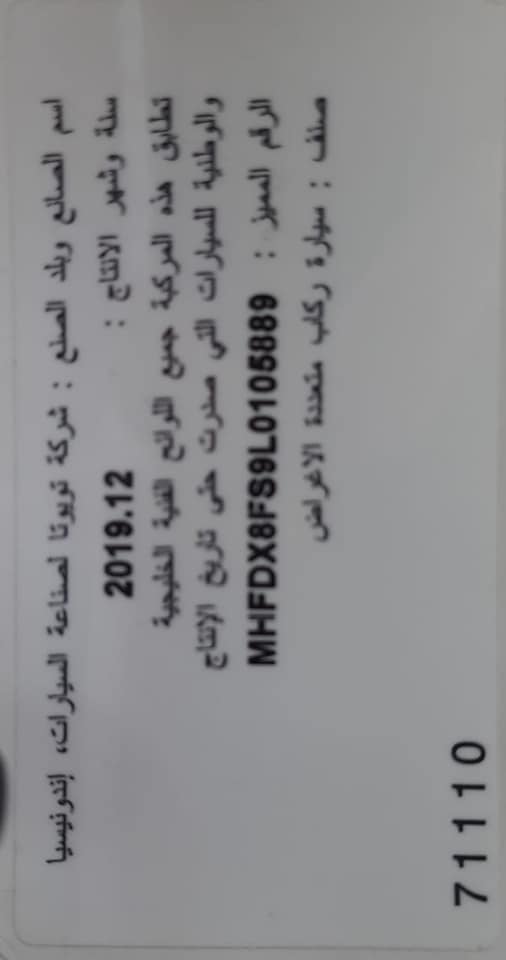 اسم الصانع وبلد الصنع : شركة تويوتا لصناعة السيارات، إندونيسيا
سنة وشهر الانتاج : 2019.12
تطابق هذه المركبة جميع اللوائح الفنية الخليجية
والوطنية للسيارات التي صدرت حتى تاريخ الإنتاج
الرقم المميز : MHFDX8FS9L0105889
صنف : سيارة ركاب متعددة الاغراض
71110